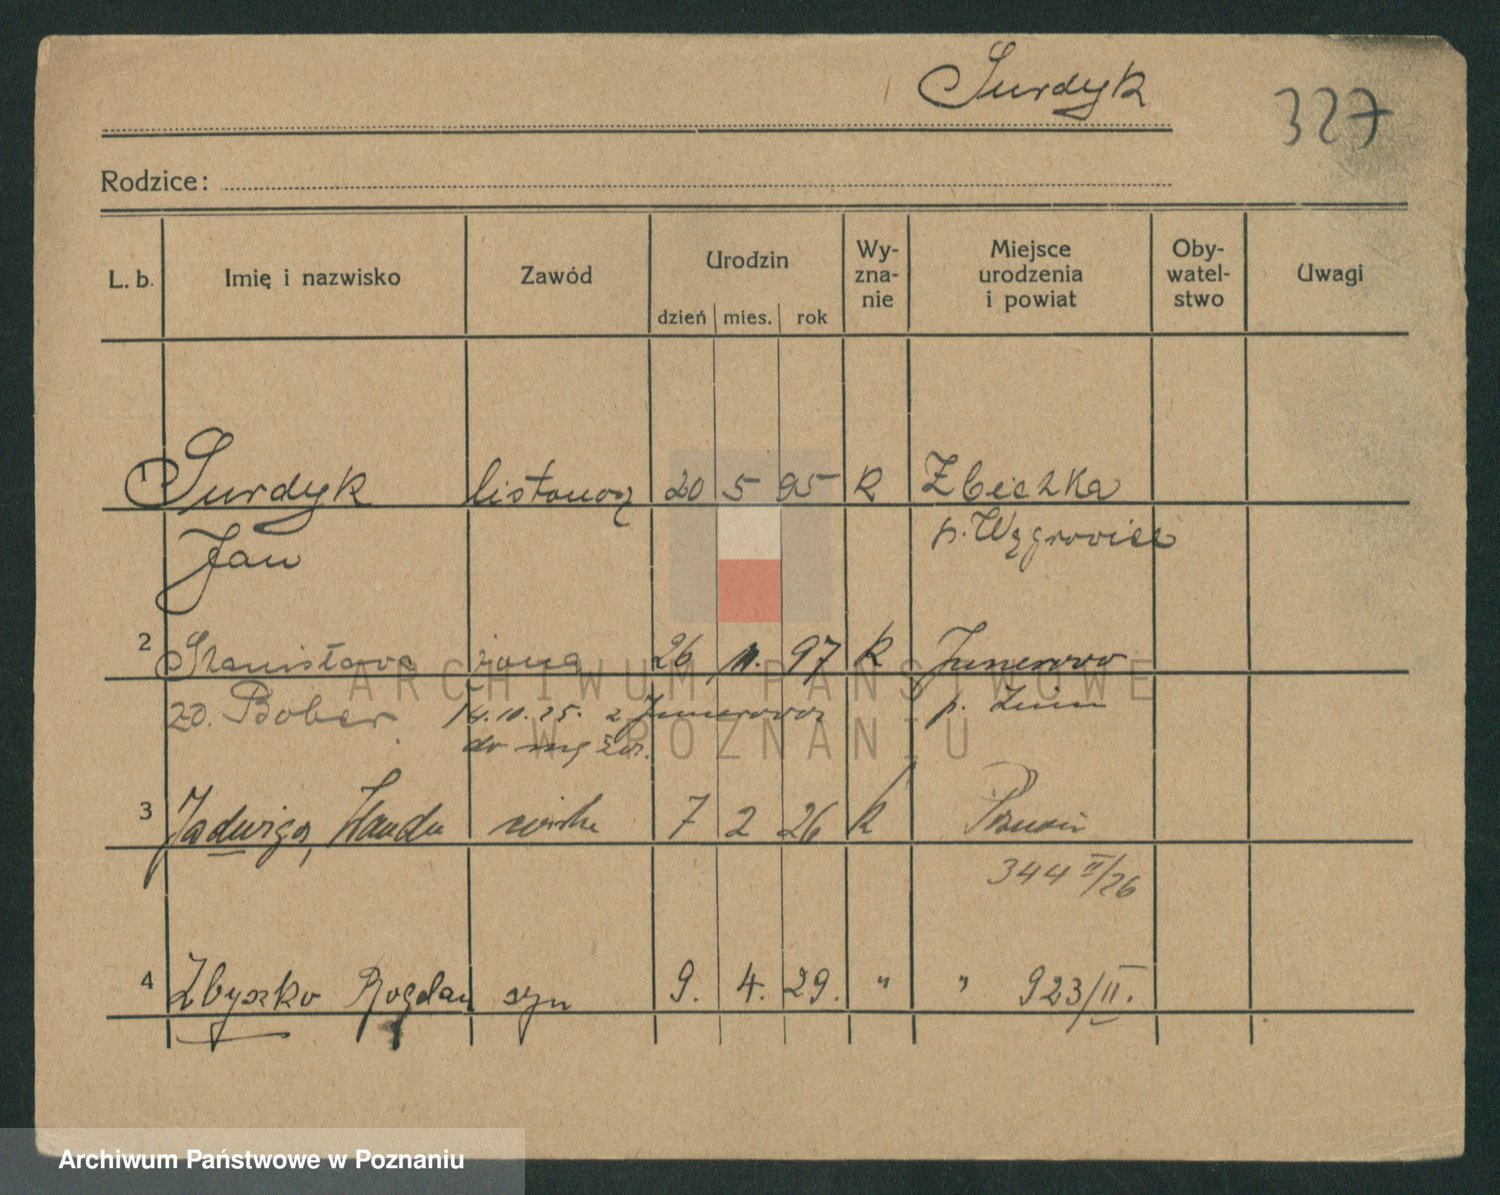 Surdyk
327
Rodzice:
L. b. Imię i nazwisko Zawód Urodzin dzień mies. rok Wy-zna-nie Miejsce urodzenia i powiat Oby-watel-stwo Uwagi
1 Surdyk listonosz 20 5 95 k Zbiczka
Jan p. Wągrowiec
2 Stanisława żona 26 11. 97 k
zd. Bober 14.10.25. z p. Żnin
do męża.
3 Jadwiga, Wanda córka 7 2 26 k Poznań
344 II/26
4 Zbyszko Bogdan syn 9. 4. 29. " " 923/II.
ARCHIWUM PAŃSTWOWE
W POZNANIU
Archiwum Państwowe w Poznaniu